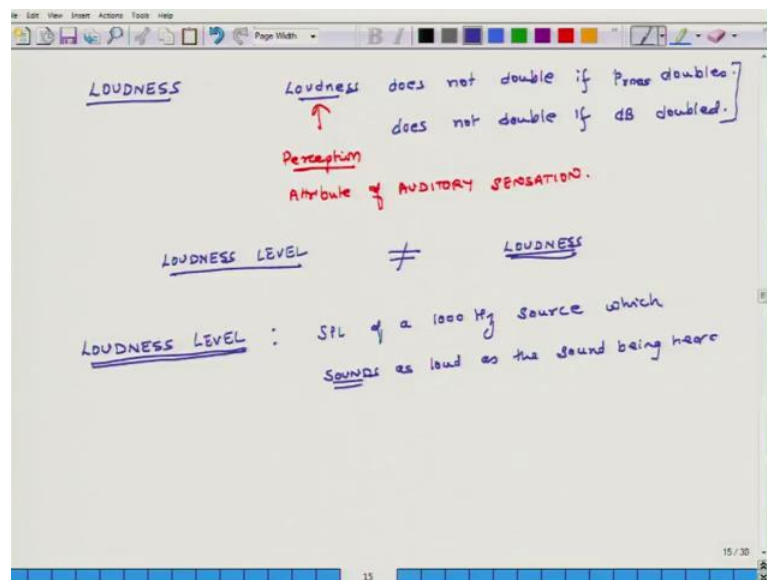 Edit View Insert Actions Tools Help
Page Width
B I
LOUDNESS Loudness does not double if Prms doubles.
does not double if dB doubled.
Perception
Attribute of AUDITORY SENSATION.
LOUDNESS LEVEL ≠ LOUDNESS
LOUDNESS LEVEL : SPL of a 1000 Hz source which
SOUNDS as loud as the sound being heard
15/30
15